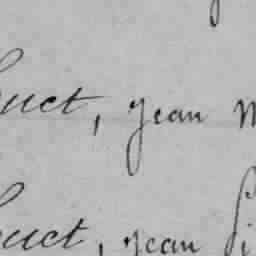 uct, jean m
uct, jean